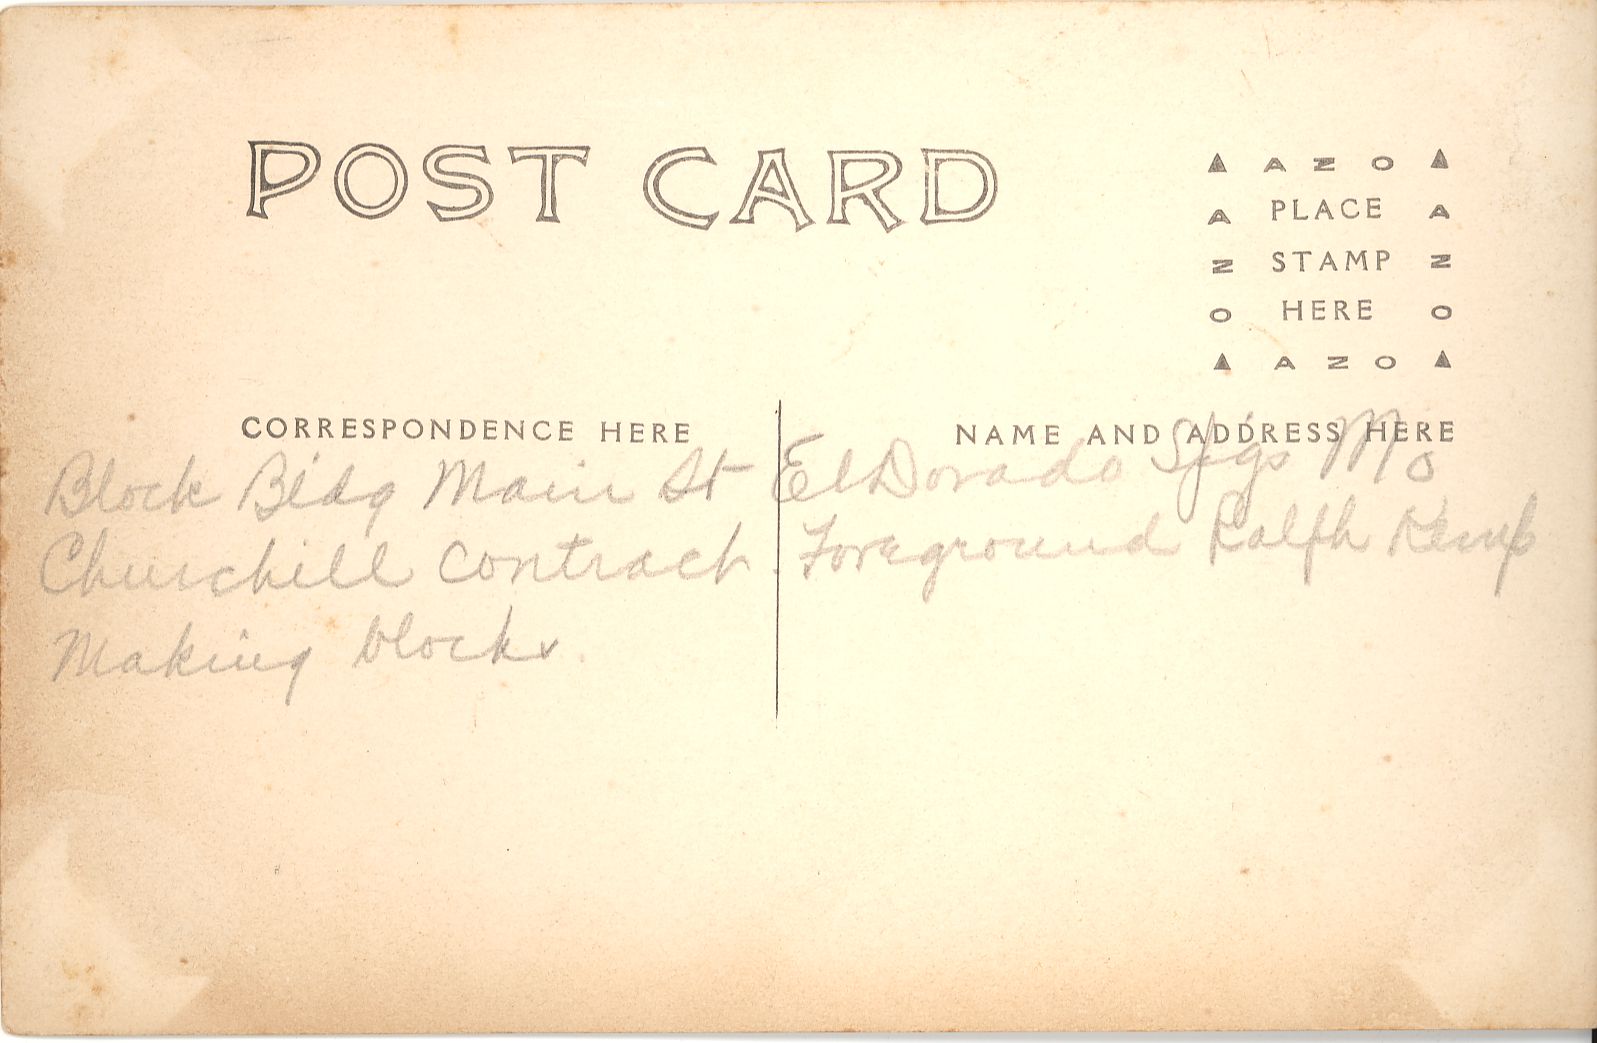 POST CARD
▲ A Z O ▲
A PLACE A
Z STAMP Z
O HERE O
▲ A Z O ▲
CORRESPONDENCE HERE
NAME AND ADDRESS HERE
Block Bldg Main St El Dorado Spgs Mo
Churchill contract Foreground Ralph Kemp
Making blocks